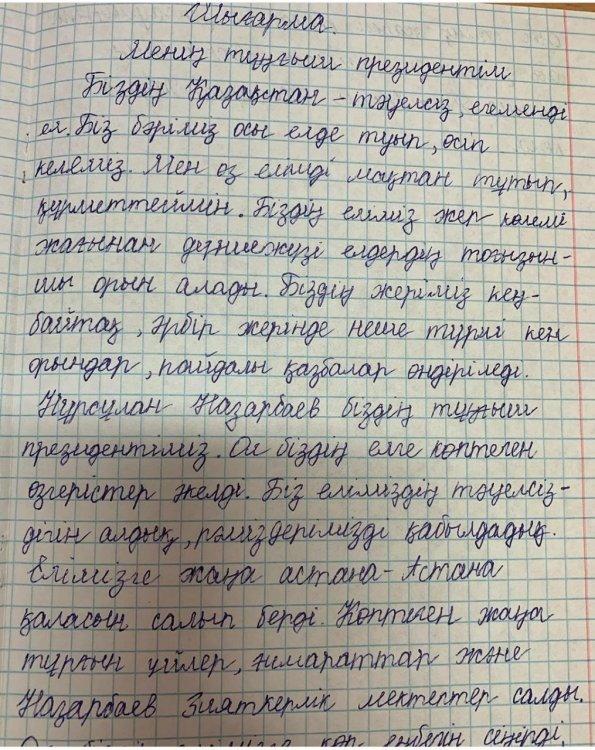 Шығарма.
Менің тұңғыш президентім
Біздің Қазақстан - тәуелсіз, егеменді
ел. Біз бәріміз осы елде туып, өсіп
келеміз. Мен өз елімді мақтан тұтып,
құрметтеймін. Біздің еліміз жер көлемі
жағынан дүниежүзі елдердің тоғызын-
шы орын алады. Біздің жеріміз кең-
байтақ, әрбір жерінде неше түрлі кен
орындар, пайдалы қазбалар өндіріледі.
Нұрсұлан Назарбаев біздің тұңғыш
президентіміз. Ол біздің елге көптеген
өзгерістер әкелді. Біз еліміздің тәуелсіз-
дігін алдық, рәміздерімізді қабылдадық.
Елімізге жаңа астана - Астана
қаласын салып берді. Көптеген жаңа
тұрғын үйлер, ғимараттар және
Назарбаев Зияткерлік мектептер салды.
көп еңбегін сеңірді.